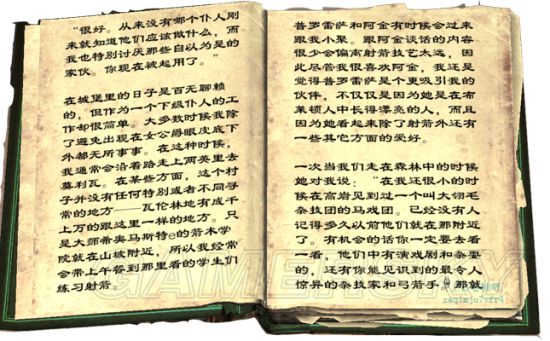 “很好。从来没有哪个仆人刚
来就知道他们应该做什么，而
我也特别讨厌那些自以为是的
家伙。你现在被起用了。”
在城堡里的日子是百无聊赖
的，但作为一个下级仆人的工
作却很简单。大多数时候我除
了避免出现在女公爵眼皮底下
外都无所事事。在这种时候，
我通常会沿着路走上两英里去
莫利瓦。在某些方面，这个村
子并没有任何特别或者不同寻
常的地方——瓦伦林地有成千
上万的跟这里一样的地方。只
是大师希奥马斯特e的箭术学
院就在山坡附近，所以我经常
会带上午餐到那里看的学生们
练习射箭。
普罗雷萨和阿金有时候会过来
跟我小聚。跟阿金谈话的内容
很少会偏离射箭技艺太远，因
此尽管我很喜欢阿金，我还是
觉得普罗雷萨是个更吸引我的
伙伴，不仅仅是因为她是在布
莱顿人中长得漂亮的人，而且
因为她看起来除了射箭外还有
一些其它方面的爱好。
一次当我们走在森林中的时候
她对我说：“在我还很小的时
候在高岩见到过一个叫大翎毛
杂技团的马戏团。已经没有人
记得多久以前他们就在那附近
了。有机会的话你一定要去看
一看，他们中有演戏剧和杂耍
的，还有你能见识到的最令人
惊异的杂技家和弓箭手。那就
GAMERSKY
zaqimju7vfr4